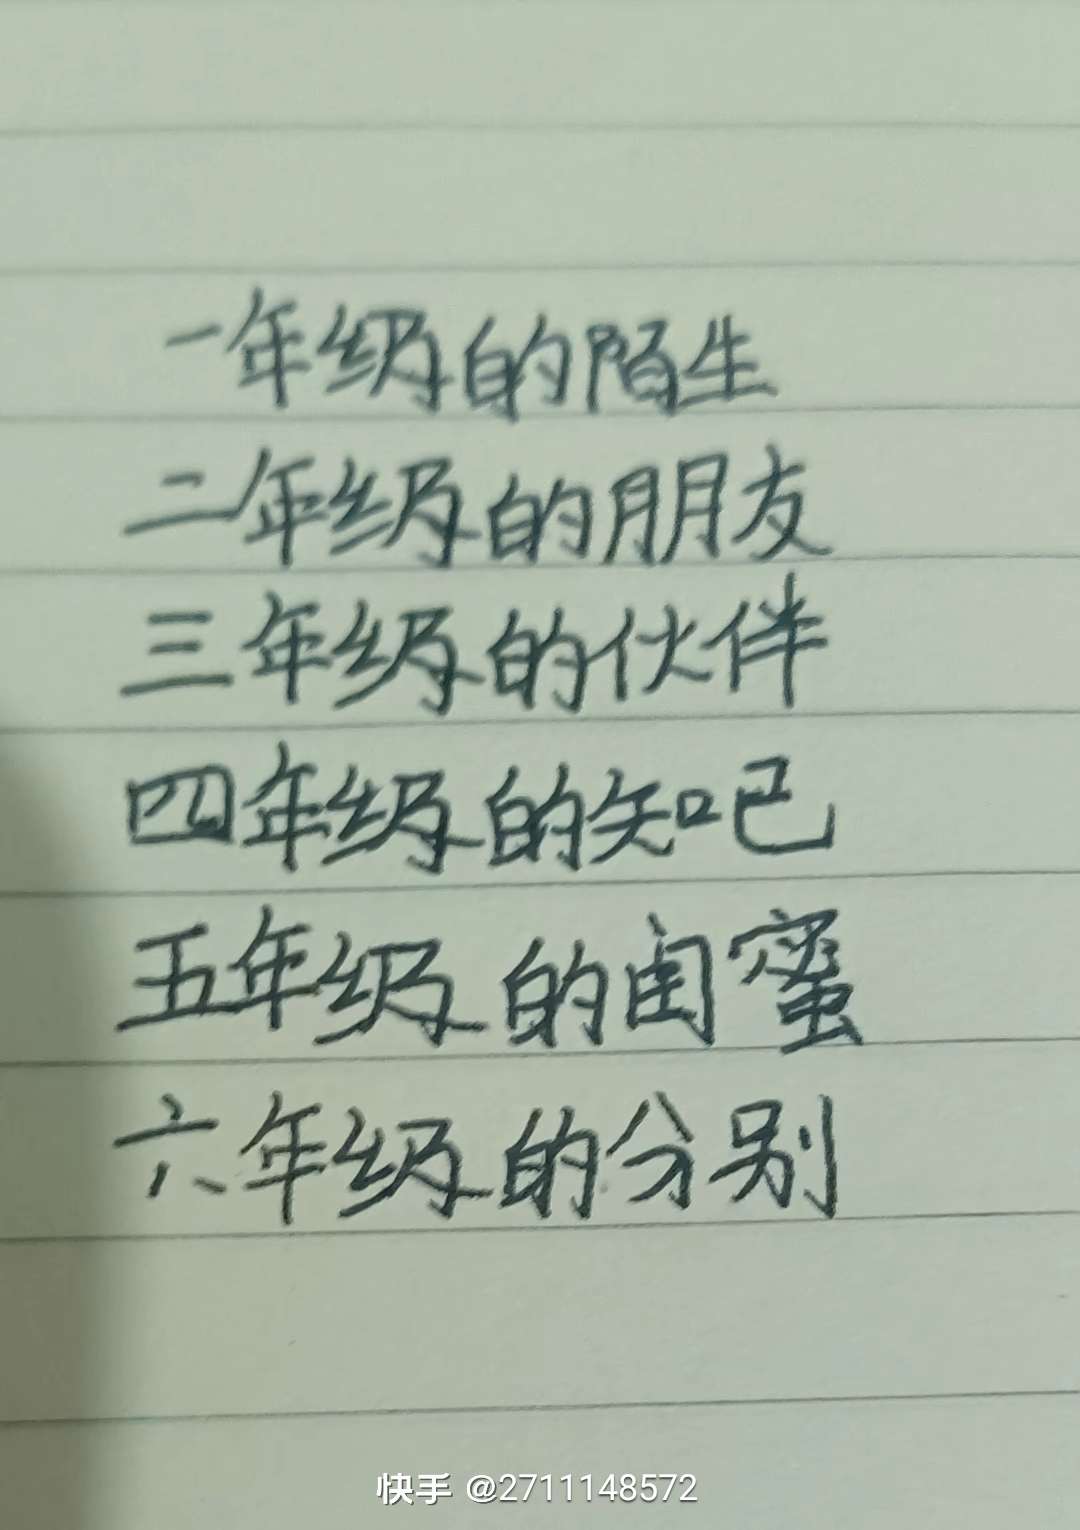 一年级的陌生
二年级的朋友
三年级的伙伴
四年级的知己
五年级的闺蜜
六年级的分别
快手 @2711148572